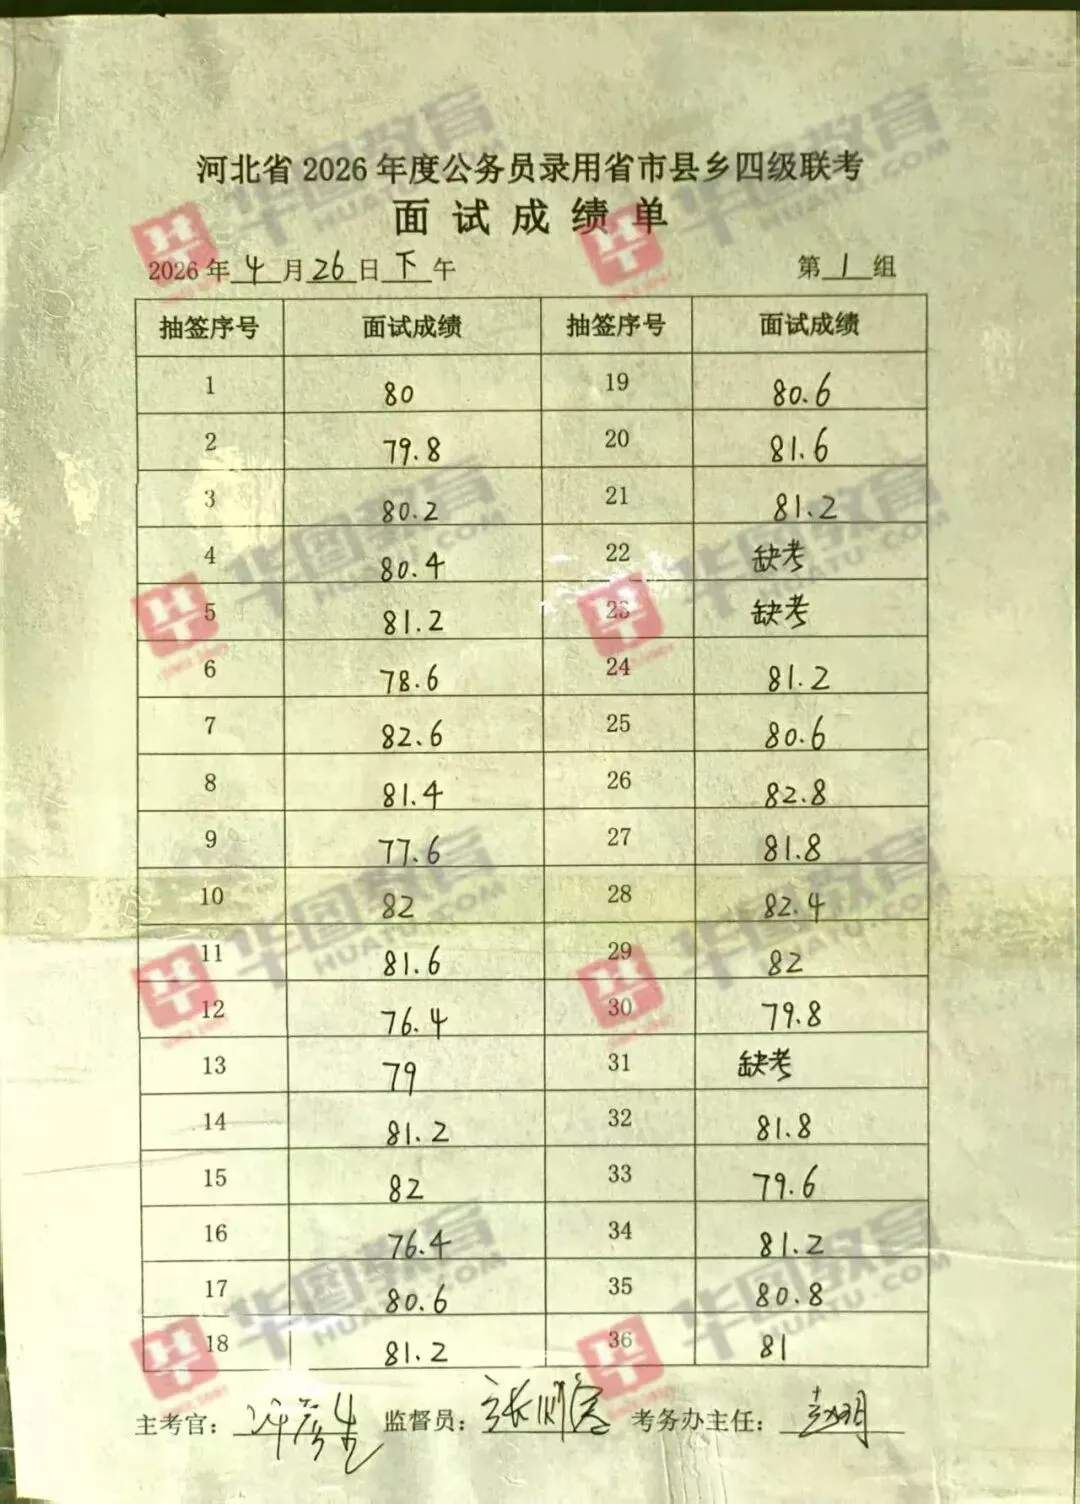 河北省2026年度公务员录用省市县乡四级联考
面试成绩单
2026年4月26日下午 第1组
抽签序号 面试成绩 抽签序号 面试成绩
1 80 19 80.6
2 79.8 20 81.6
3 80.2 21 81.2
4 80.4 22 缺考
5 81.2 23 缺考
6 78.6 24 81.2
7 82.6 25 80.6
8 81.4 26 82.8
9 77.6 27 81.8
10 82 28 82.4
11 81.6 29 82
12 76.4 30 79.8
13 79 31 缺考
14 81.2 32 81.8
15 82 33 79.6
16 76.4 34 81.2
17 80.6 35 80.8
18 81.2 36 81
主考官： 监督员： 考务办主任：
华图教育
HUATU.COM
华图教育
HUATU.COM
华图教育
HUATU.COM
华图教育
HUATU.COM
华图教育
HUATU.COM
华图教育
HUATU.COM
华图教育
HUATU.COM
华图教育
HUATU.COM